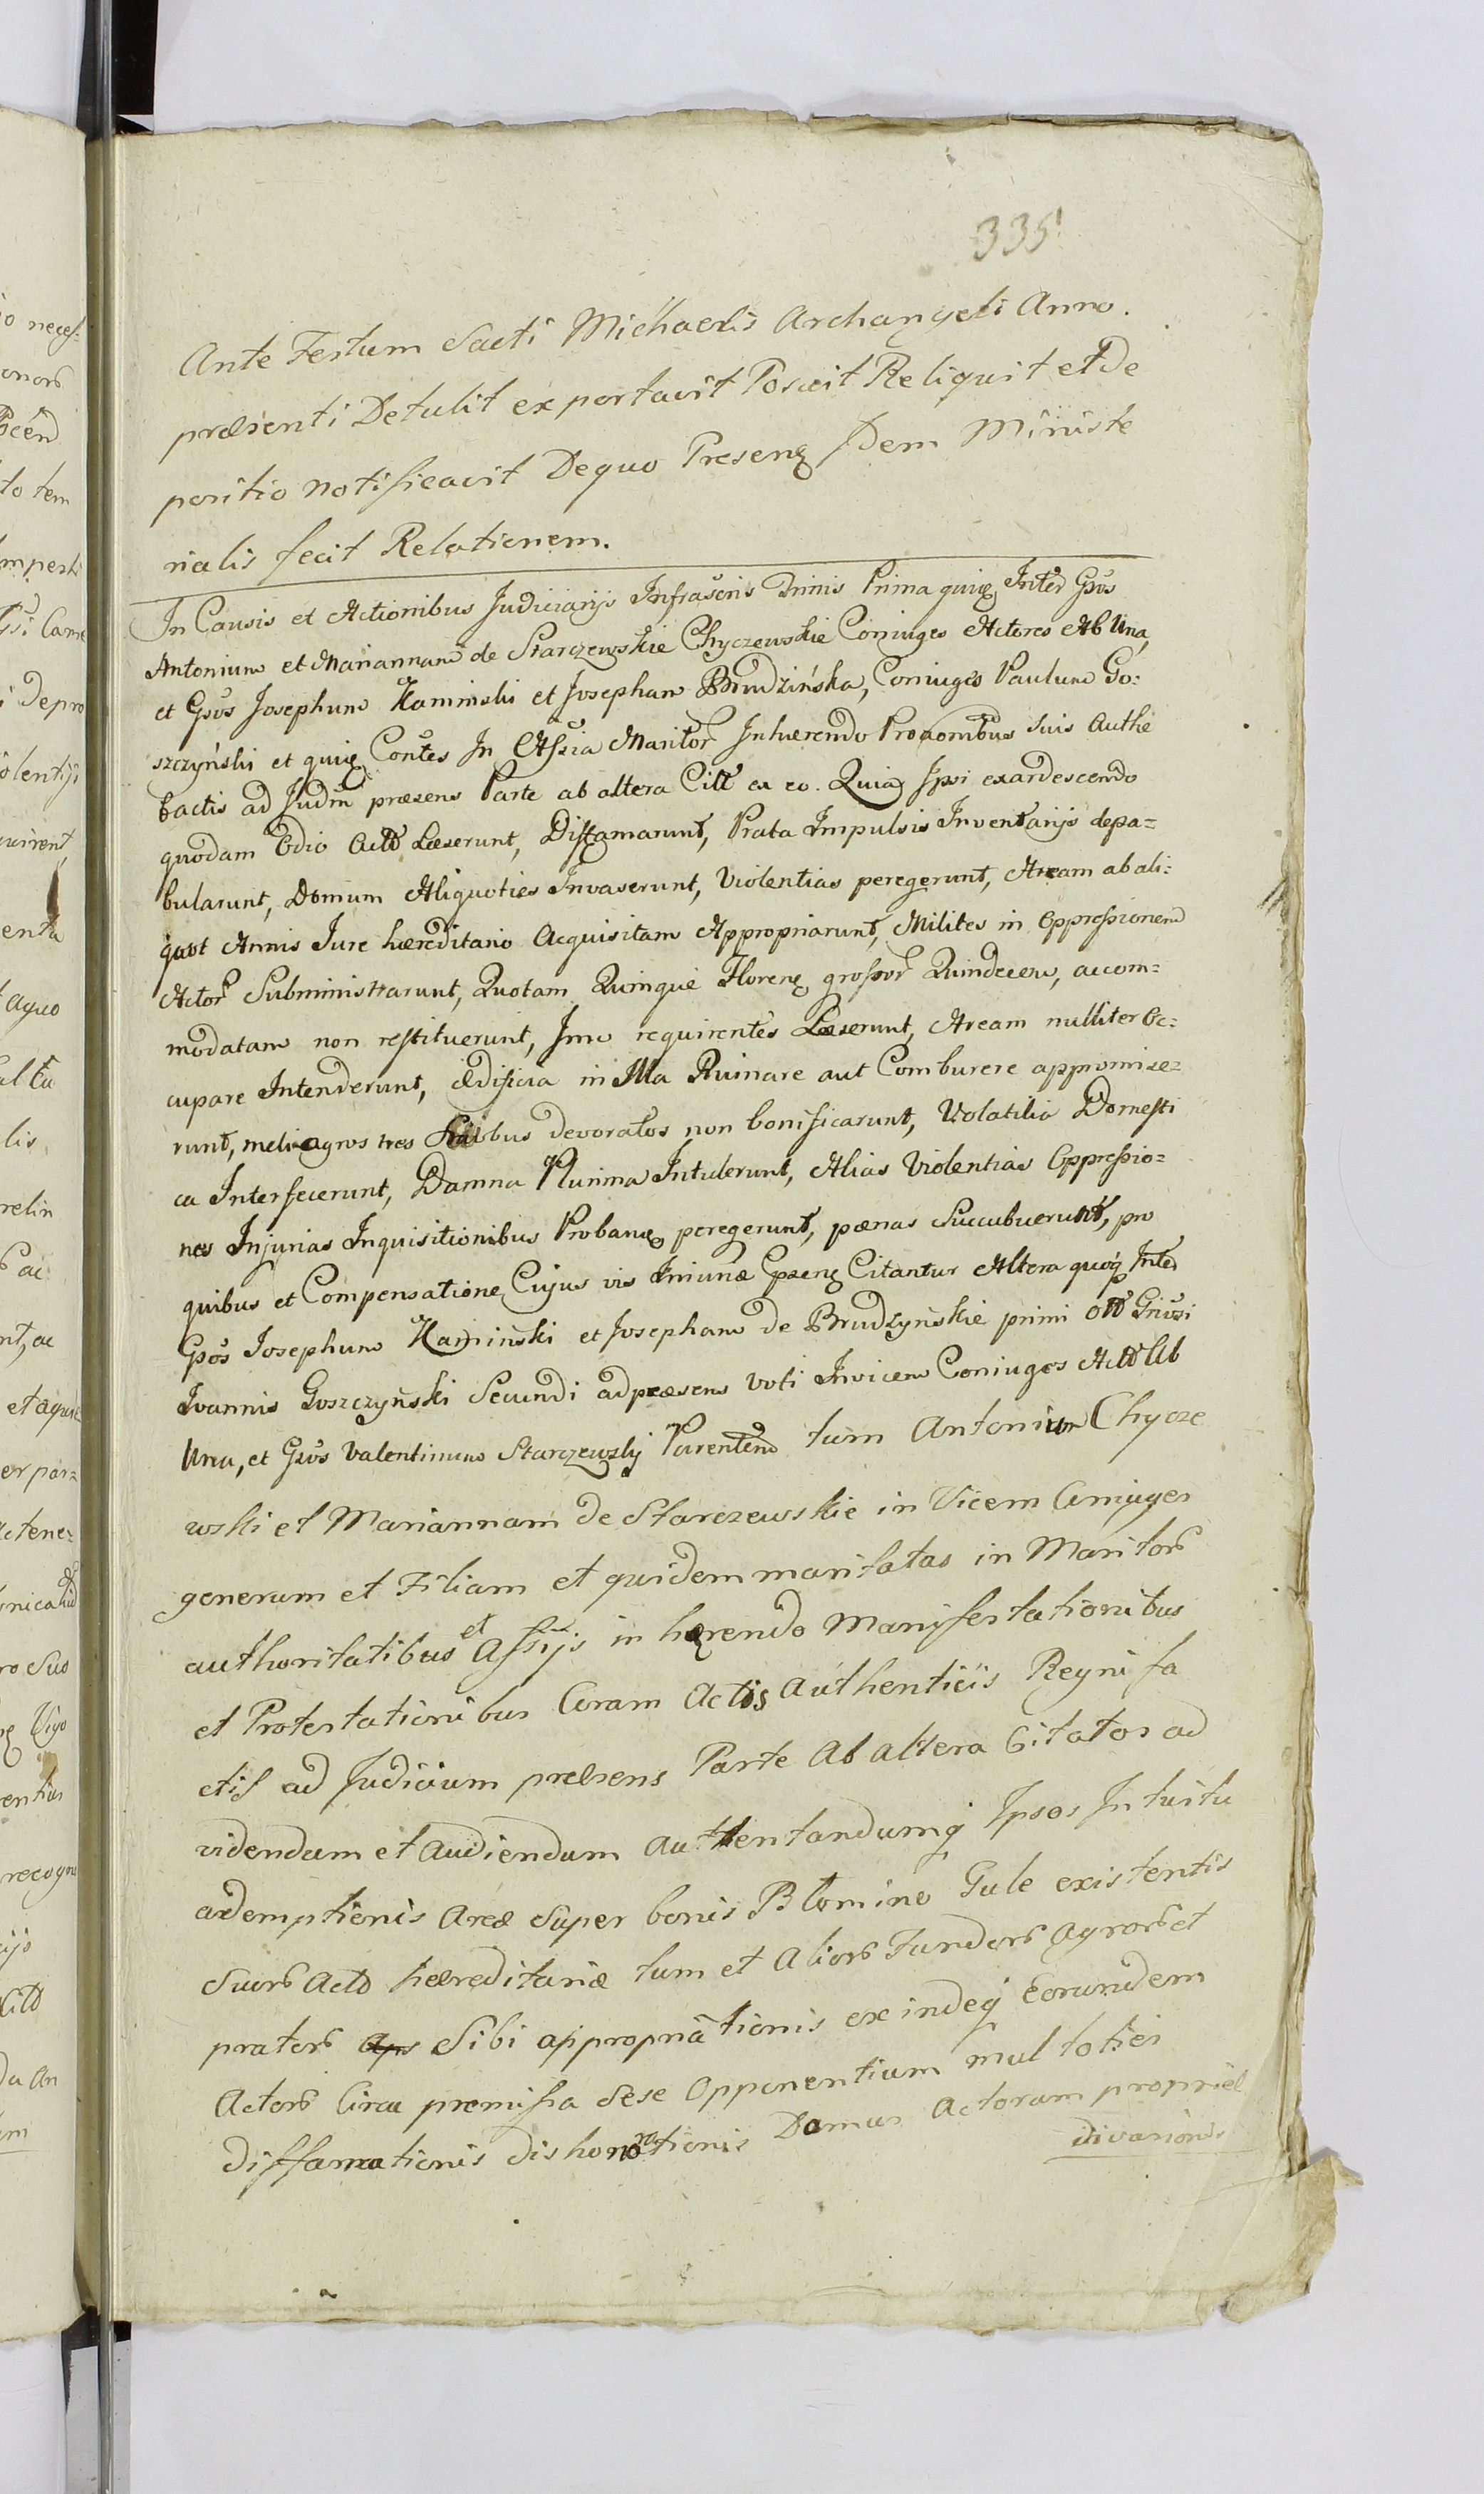 335
Ante Festum Sacti Michaelis Archangeli Anno.
præsenti Detulit exportavit Posuit Reliquit et De
positio notificavit De quo Preseng Idem Ministe
rialis fecit Relationem.
In Causis et Actionibus Judiciarijs Infrascris Primis Prima quiq Inter Gsos
Antonium et Mariannam de Starczewskie Chyczewskie Coniuges Actores Ab Una,
et Gsos Josephum Kaminski et Josepham Brudzińska, Coniuges Paulum Go:
szczyński et quiq Contes In Assia Maritor Inhærendo Proaonibus Suis Authe
factis ad Judm præsens Parte ab altera Citt ex eo. Quia Ipsi exardescendo
quodam Odio Actt Læserunt, Diffamarunt, Prata Impulsis Inventarijs depa=
bularunt, Domum Aliquoties Invaserunt, Violentias peregerunt, Aream ab ali:
quot Annis Jure hæreditario Acquisitam Appropriarunt, Milites in Oppressionem
Actor Subministrarunt, Quotam Quinque Floreng grossor Quindecem, accom=
modatam non restituerunt, Imo requirentes Læserunt, Aream nulliter Oc:
cupare Intenderunt, Ædificia in Illa Ruinare aut Comburere appromise=
runt, meliagros tres devoratos non bonificarunt, Volatilia Domesti
ca Interfecerunt, Damna Plurima Intulerunt, Alias Violentias Oppressio=
nes Injurias Inquisitionibus Probang peregerunt, pænas Succubuerunt, pro
quibus et Compensatione Cujus vis Iniuriæ Citantur Altera quoq Inter
Gsos Josephum Kaminski et Josepham de Brudzyńskie primi ott Gnosi
Ioannis Goszczyński Secundi ad præsens Voti Invicem Coniuges Actt Ab
Una, et Gsos Valentinum Starczewsky Parentem tum Antonium Chycze
wski et Mariannam de Starczewskie in Vicem Coniuges
generum et Filiam et quidem maritatas in Maritor
authoritatibus et Assijs in hærendo Manifestationibus
et Protestationibus Coram Actis Authenticis Regni fa
ctis ad Judicium præsens Parte Ab altera Citatos ad
videndum et Audiendum Attentandumq Ipsos Intuitu
ademptionis Areæ Super bonis Blomino Gule existentis
Suor Actt hæreditariæ tum et Alior Fundor Agror et
prator Aps Sibi appropriationis exindeq Eorundem
Actor Circa premissa Sese Opponentium multoties
diffamationis dishonorationis Domus Actorum propriæ
divarionis